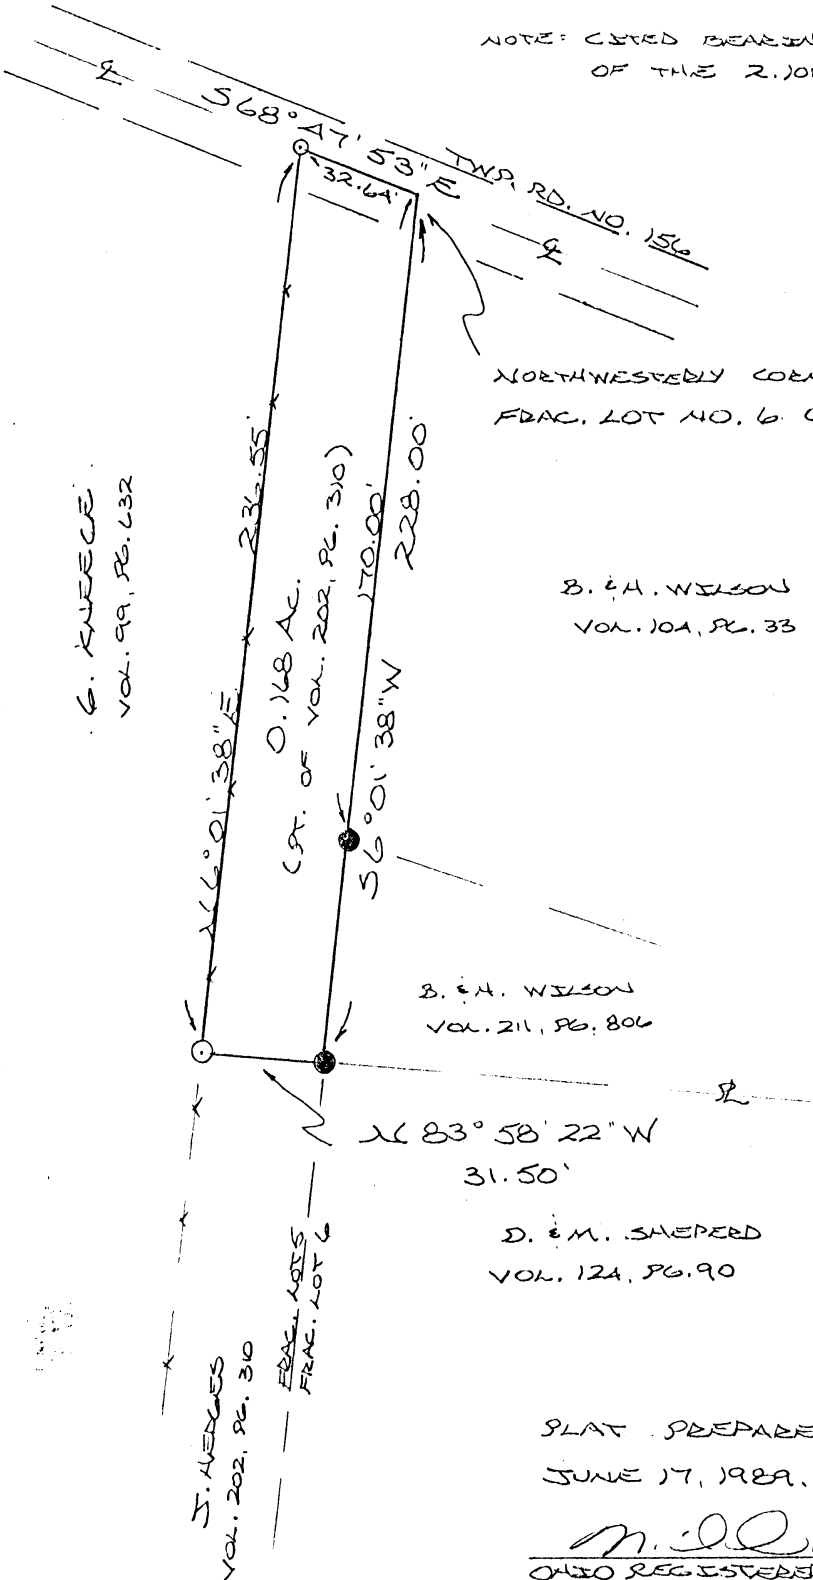 NOTE: CITED BEARIN
OF THE 2.101
℄
S68°47'53"E
32.64'
TWP. RD. NO. 156
℄
NORTHWESTERLY COR
FRAC. LOT NO. 6
G. KNEECE
VOL. 99, PG. 632
236.55'
N6°01'38"E
0.168 AC.
(PT. OF VOL. 202, PG. 310)
170.00'
228.00'
S6°01'38"W
B. & H. WILSON
VOL. 104, PG. 33
B. & H. WILSON
VOL. 211, PG. 806
PL
N 83° 58' 22" W
31.50'
D. & M. SHEPERD
VOL. 124, PG. 90
FRAC. LOT 5
FRAC. LOT 6
J. HEDGES
VOL. 202, PG. 310
PLAT PREPARE
JUNE 17, 1989.
OHIO REGISTERE